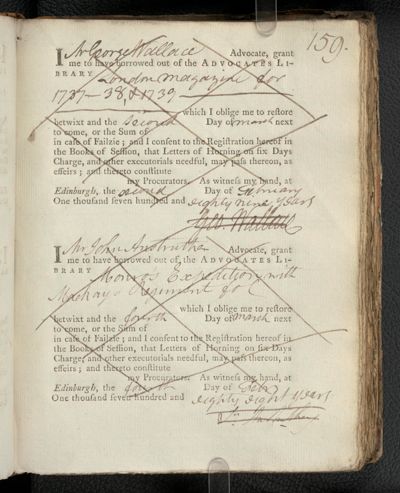 159.
I Mr George Wallace Advocate, grant
me to have borrowed out of the ADVOCATES LI-
BRARY London Magazine for
1737-38, & 1739
which I oblige me to restore
betwixt and the second Day of March next
to come, or the Sum of
in case of Failzie; and I consent to the Registration hereof in
the Books of Session, that Letters of Horning on six Days
Charge, and other executorials needful, may pass thereon, as
effeirs; and thereto constitute
my Procurators. As witness my hand, at
Edinburgh, the second Day of February
One thousand seven hundred and eighty nine years
Geo. Wallace
I Mr John Anstruther Advocate, grant
me to have borrowed out of the ADVOCATES LI-
BRARY Monro's Expedition with
Mackay's Regiment
which I oblige me to restore
betwixt and the fourth Day of March next
to come, or the Sum of
in case of Failzie; and I consent to the Registration hereof in
the Books of Session, that Letters of Horning on six Days
Charge, and other executorials needful, may pass thereon, as
effeirs; and thereto constitute
my Procurators. As witness my hand, at
Edinburgh, the fourth Day of Feb
One thousand seven hundred and eighty eight years
Jn. Anstruther